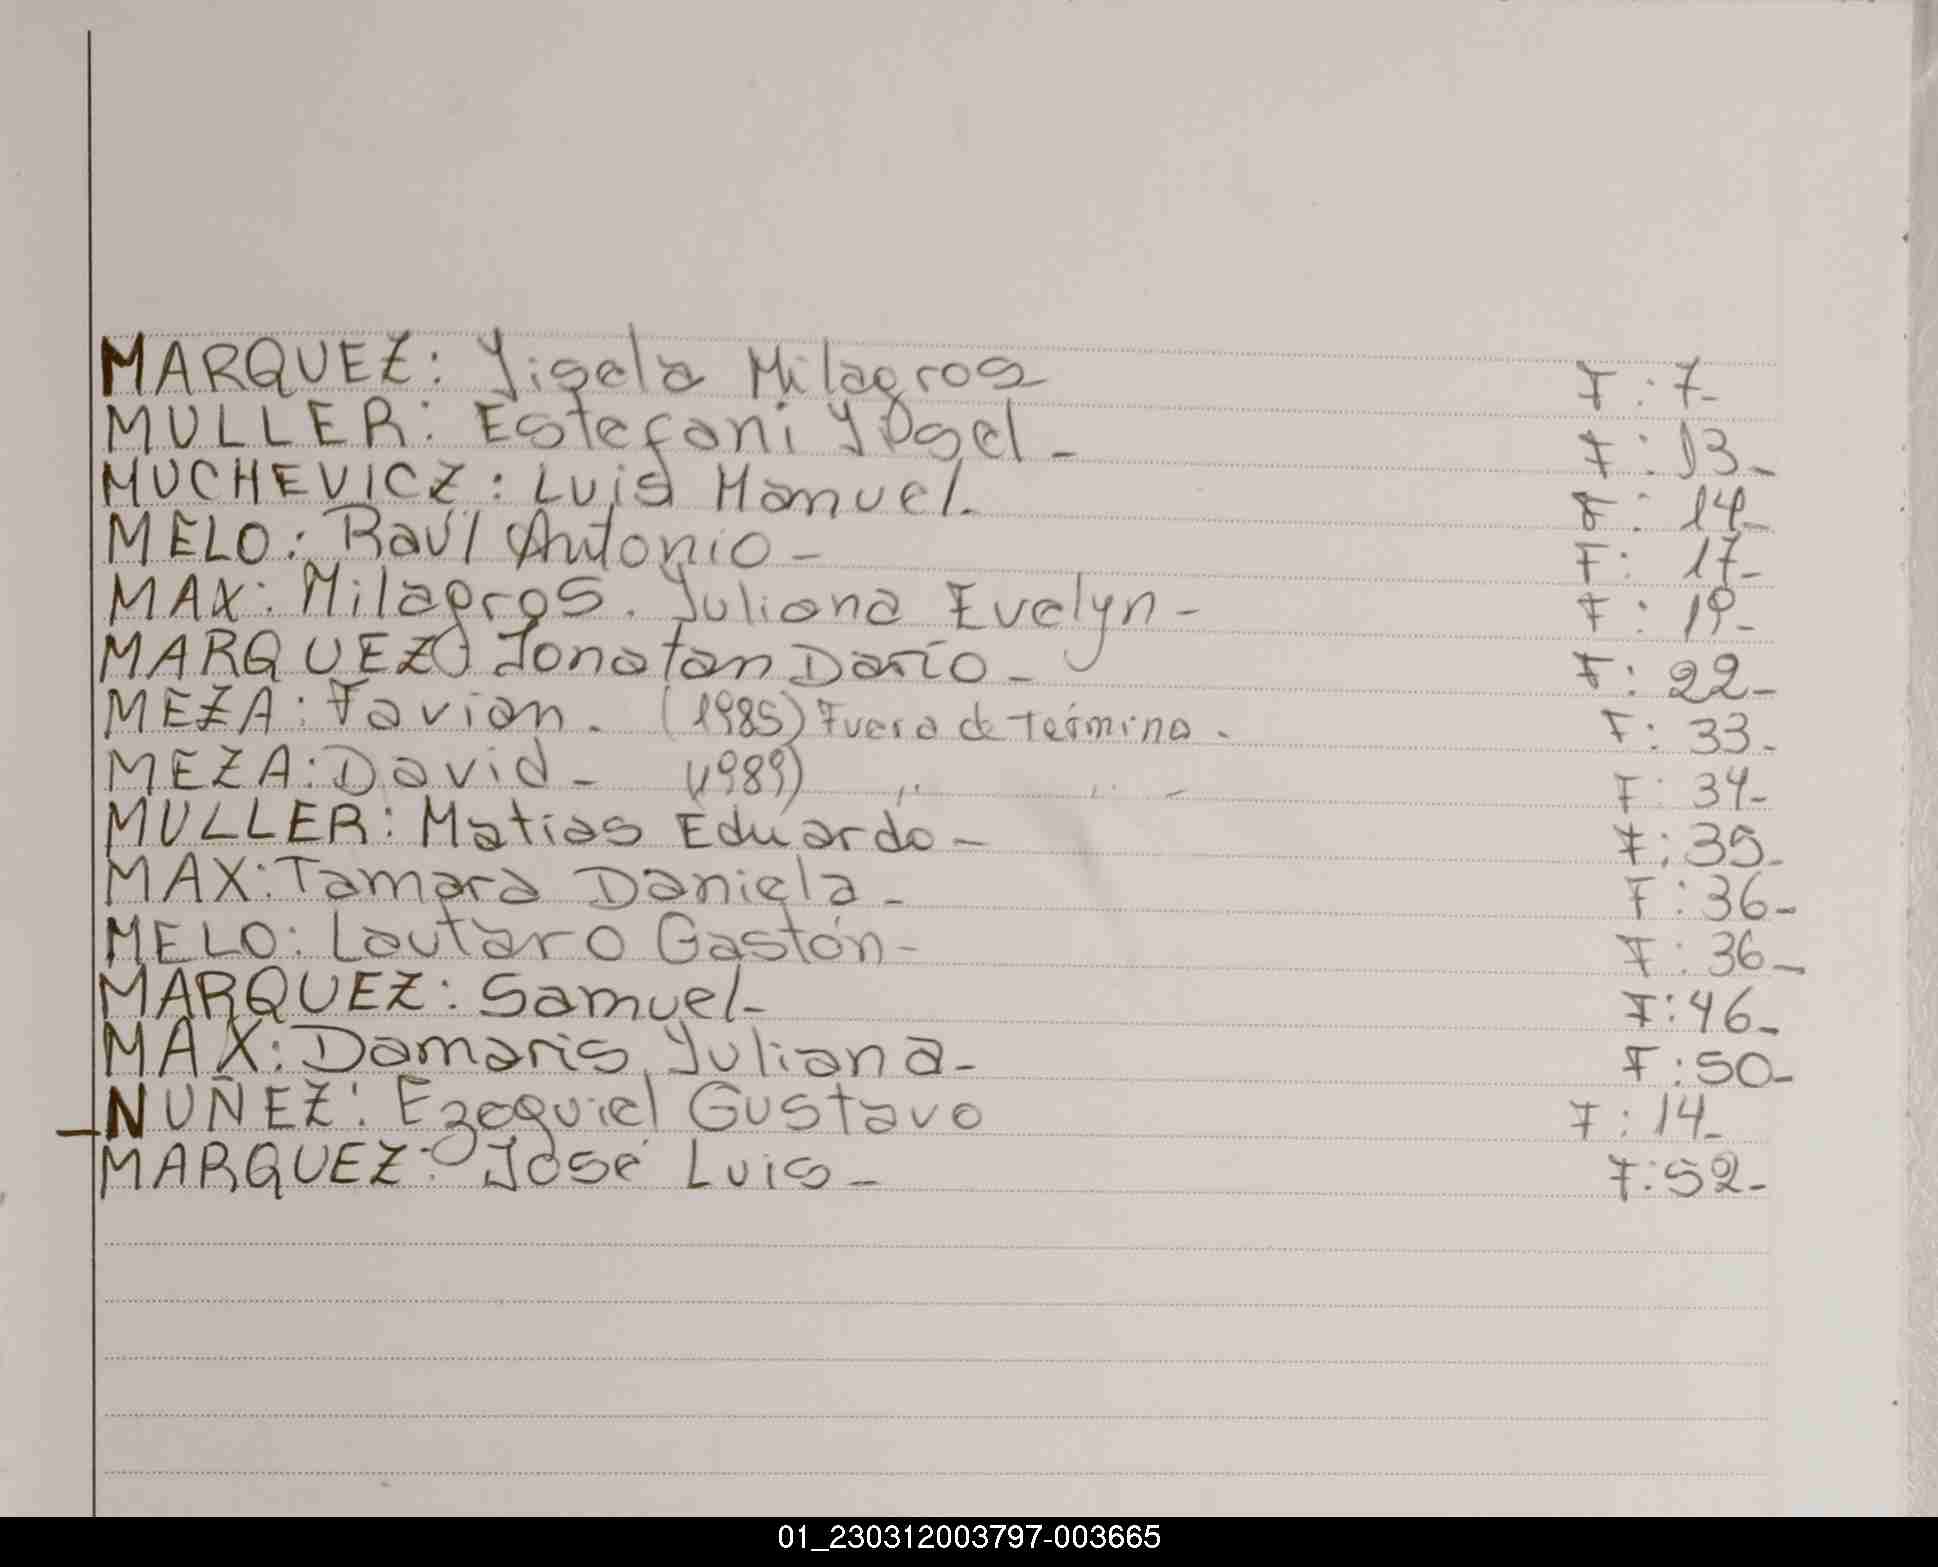 MARQUEZ: Yisela Milagros F: 7-
MULLER: Estefani Yosel - F: 13-
MUCHEVICZ: Luis Manuel. F: 14-
MELO: Raúl Antonio - F: 17-
MAX: Milagros. Yuliana Evelyn - F: 19-
MARQUEZ: Jonatan Darío - F: 22-
MEZA: Favian. (1985) Fuera de Término. F: 33-
MEZA: David - (1989) ,, ,, - F: 34-
MULLER: Matias Eduardo - F: 35-
MAX: Tamara Daniela - F: 36-
MELO: Lautaro Gastón - F: 36-
MARQUEZ: Samuel - F: 46-
MAX: Damaris Yuliana - F: 50-
-NUÑEZ: Ezequiel Gustavo F: 14-
MARQUEZ: José Luis - F: 52-
01_230312003797-003665